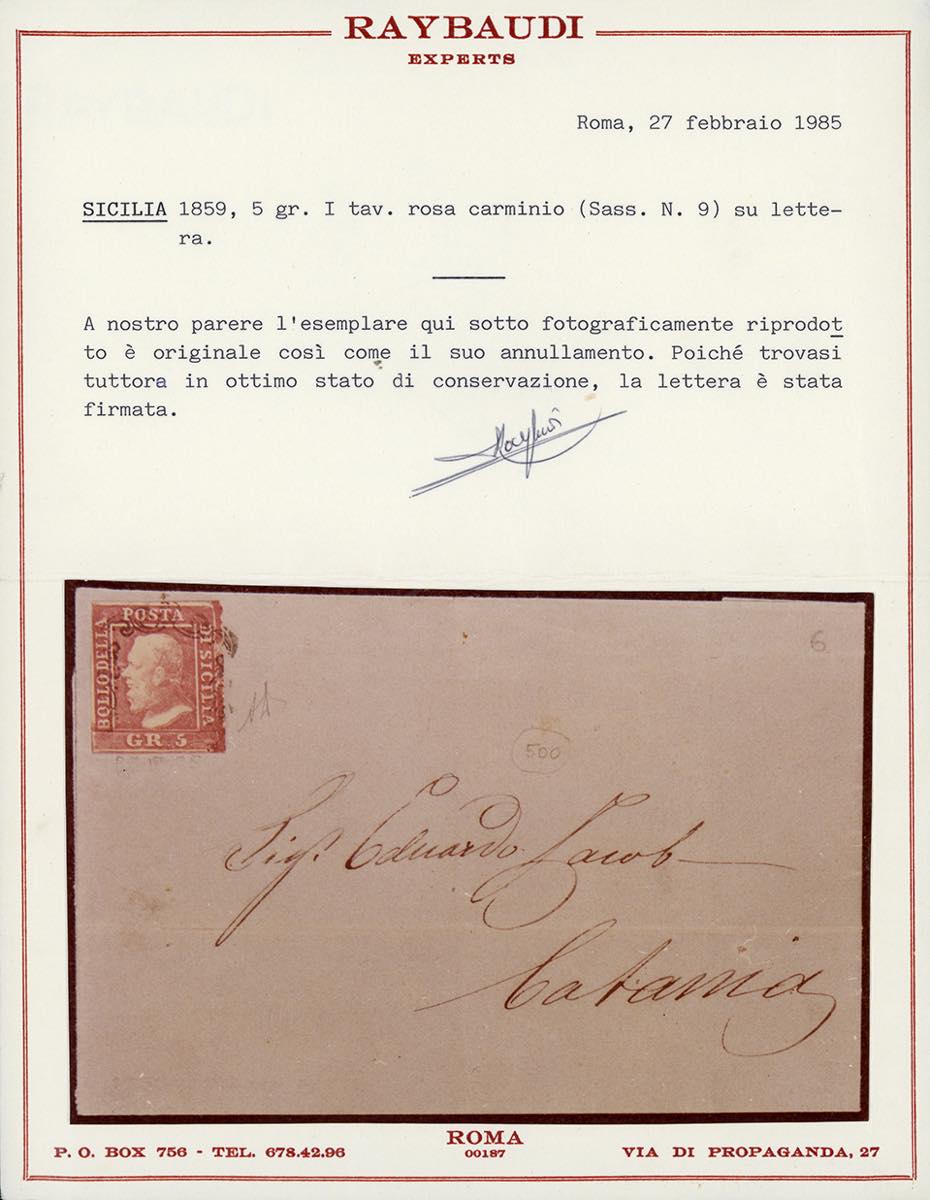 RAYBAUDI
EXPERTS
Roma, 27 febbraio 1985
SICILIA 1859, 5 gr. I tav. rosa carminio (Sass. N. 9) su lette-
ra.
A nostro parere l'esemplare qui sotto fotograficamente riprodot
to è originale così come il suo annullamento. Poiché trovasi
tuttora in ottimo stato di conservazione, la lettera è stata
firmata.
POSTA
BOLLO DELLA
DI SICILIA
GR. 5
6
500
Sigr. Eduardo Jacob
Catania
ROMA
00187
P. O. BOX 756 - TEL. 678.42.96
VIA DI PROPAGANDA, 27